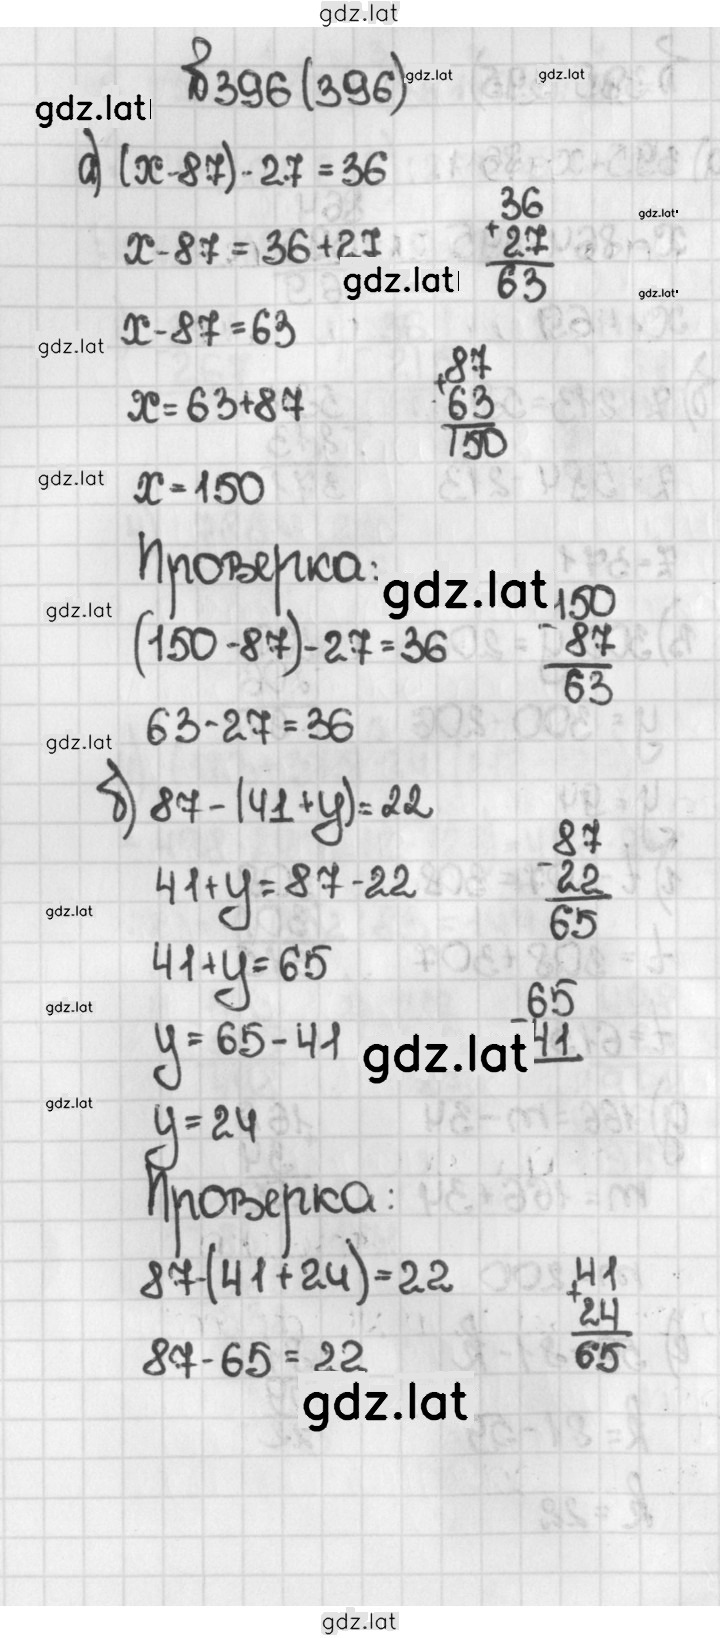 gdz.lat
№ 396 (396)
gdz.lat
gdz.lat
gdz.lat
а) (x-87)-27=36
36
+27
63
gdz.lat
x-87=36+27
gdz.lat
gdz.lat
x-87=63
gdz.lat
87
+63
150
x=63+87
gdz.lat
x=150
Проверка:
gdz.lat
gdz.lat
150
-87
63
(150-87)-27=36
63-27=36
gdz.lat
б) 87-(41+y)=22
87
-22
65
41+y=87-22
gdz.lat
41+y=65
gdz.lat
65
-41
y=65-41
gdz.lat
gdz.lat
y=24
Проверка:
87-(41+24)=22
41
+24
65
87-65=22
gdz.lat
gdz.lat